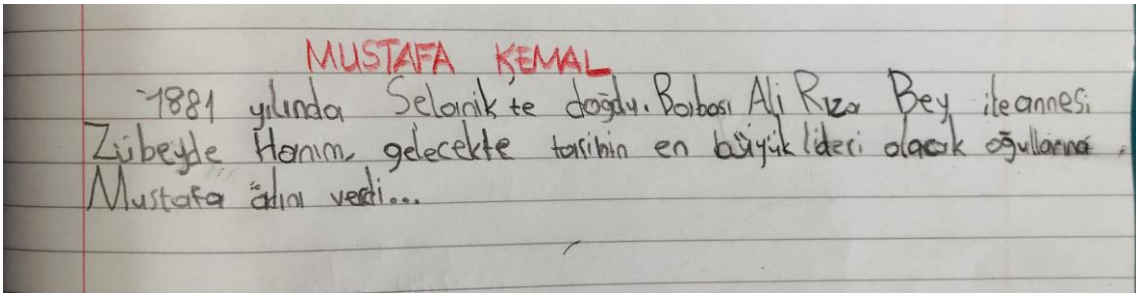 MUSTAFA KEMAL
1881 yılında Selanik'te doğdu. Babası Ali Rıza Bey ile annesi
Zübeyde Hanım, gelecekte tarihin en büyük lideri olacak oğullarına
Mustafa adını verdi...